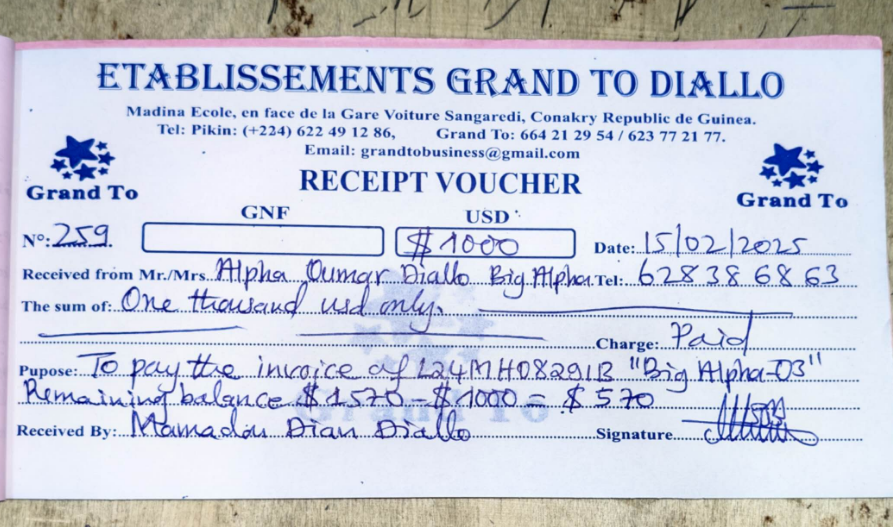 ETABLISSEMENTS GRAND TO DIALLO
Madina Ecole, en face de la Gare Voiture Sangaredi, Conakry Republic of Guinea.
Tel: Pikin: (+224) 622 49 12 86, Grand To: 664 21 29 54 / 623 77 21 77.
Email: grandtobusiness@gmail.com
Grand To RECEIPT VOUCHER Grand To
GNF USD
N°: 259. $1000 Date: 15/02/2025
Received from Mr./Mrs. Alpha Oumar Diallo Big Alpha Tel: 628 38 68 63
The sum of: One thousand usd only.
Charge: Paid
Pupose: To pay the invoice of L24MH0829IB "Big Alpha-03"
Remaining balance $1570 - $1000 = $570
Received By: Mamadou Dian Diallo Signature